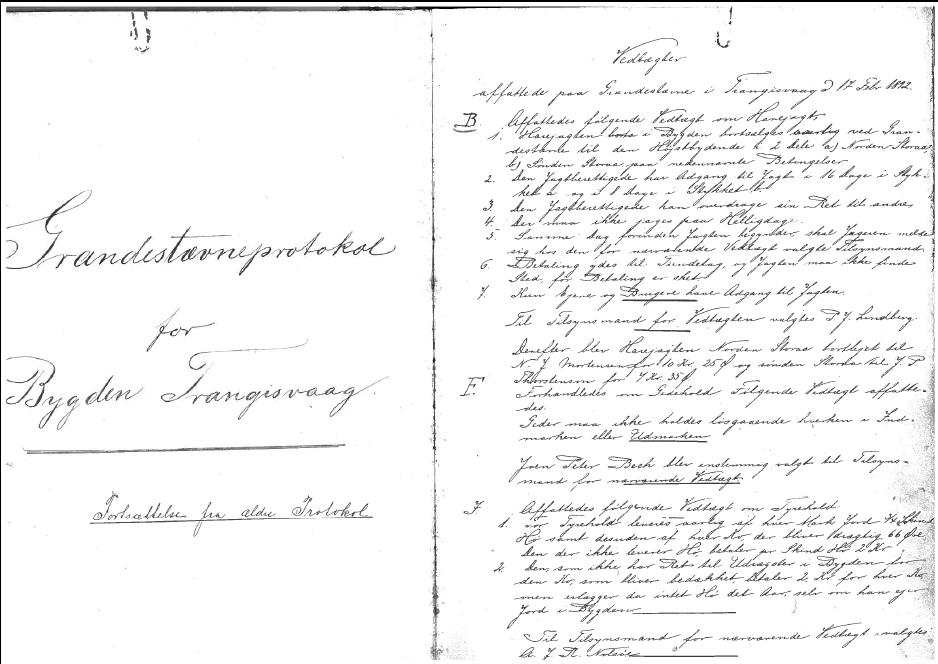 Grandestævneprotokol
for
Bygden Trangisvaag.
Fortsættelse fra ældre Protokol
Vedtægter
affattede paa Grandestævne i Trangisvaag d 17 Febr 1922.
B. Affattedes følgende Vedtægt om Harejagt
1. Harejagten i Bygden bortsælges aarlig ved Gran-
destævne til den Højstbydende i 2 Dele a) Norden Storaa,
b) Sønden Storaa paa nedennævnte Betingelser
2. Den Jagtberettigede har Adgang til Jagt i 16 Dage i Styk-
ket a og i 8 Dage i Stykket b.
3. Den Jagtberettigede kan overdrage sin Ret til andre
4. Der maa ikke jages paa Helligdage.
5. Samme Dag forinden Jagten begynder skal Jægeren melde
sig hos den for nærværende Vedtægt valgte Tilsynsmand.
6. Betaling ydes til, og Jagten maa ikke finde
Sted, før Betaling er sket.
7. Kun Ejere og Brugere have Adgang til Jagten.
Til Tilsynsmand for Vedtægten valgtes P. J. Lindberg.
Derefter blev Harejagten Norden Storaa bortlejet til
N. J. Mortensen for 10 Kr. 25 Ø og sønden Storaa til J. P.
Thorstensen for 4 Kr. 35 Ø
F. Forhandledes om Gedehold Følgende Vedtægt affatte-
des.
Geder maa ikke holdes løsgaaende hverken i Ind-
marken eller Udmarken
Joen Peter Bech blev enstemmig valgt til Tilsyns-
mand for nærværende Vedtægt.
J. Affattedes følgende Vedtægt om Tyrehold
1. For Tyrehold leveres aarlig af hver Mark Jord ¼ Skind
Hø samt desuden af hver Ko, der bliver drægtig 66 Øre
Den der ikke leverer Hø, betaler pr Skind Hø 2 Kr.
2. Den, som ikke har Ret til Udragster i Bygden for
den Ko, som bliver bedækket betaler 2 Kr. for hver Ko,
men erlægger da intet Hø det Aar, selv om han ejer
Jord i Bygden
Til Tilsynsmand for nærværende Vedtægt valgtes